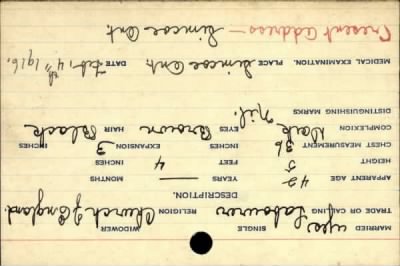 MARRIED yes SINGLE WIDOWER
TRADE OR CALLING Labourer RELIGION Church of England.
DESCRIPTION.
APPARENT AGE 42 YEARS — MONTHS
HEIGHT 5 FEET 4 INCHES
CHEST MEASUREMENT 36 INCHES EXPANSION 3 INCHES
COMPLEXION Dark EYES Brown HAIR Black
DISTINGUISHING MARKS Nil.
MEDICAL EXAMINATION. PLACE Simcoe Ont. DATE Feb. 4th 1916.
Present address — Simcoe Ont.